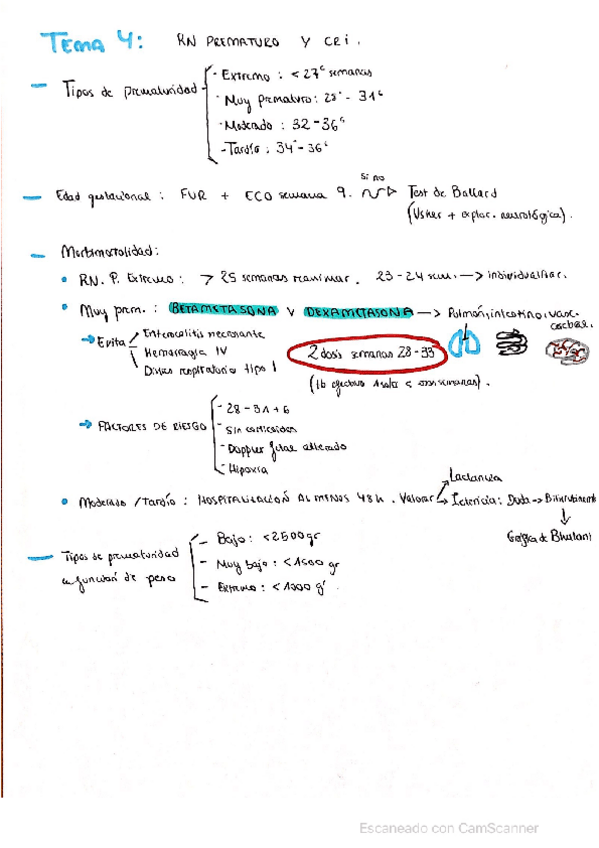 Tema 4: RN PREMATURO Y CRI.
— Tipos de prematuridad
- Extremo: < 27⁶ semanas
- Muy prematuro: 28⁰ - 31⁶
- Moderado: 32 - 36⁶
- Tardío: 34⁰ - 36⁶
— Edad gestacional: FUR + ECO semana 9. si no Test de Ballard
(Usher + explor. neurológica).
— Morbimortalidad:
• RN. P. Extremo: > 25 semanas reanimar. 23-24 sem. → individualizar.
• Muy prem.: BETAMETASONA Y DEXAMETASONA → Pulmón, intestino, vasc.
cerebral.
→ Evita
Enterocolitis necrotizante
Hemorragia IV
Distrés respiratorio tipo 1
2 dosis semanas 28-33
FACTORES DE RIESGO
- 28 - 31 + 6
- Sin corticoides
- Doppler fetal alterado
- Hipoxia
• Moderado / Tardío: HOSPITALIZACIÓN AL MENOS 48h. Valorar
Lactancia
Ictericia: Duda →
Gráfica de Bhutani
— Tipos de prematuridad
en función de peso
- Bajo: <2500gr
- Muy bajo: <1500 gr
- Extremo: <1000 g
Escaneado con CamScanner